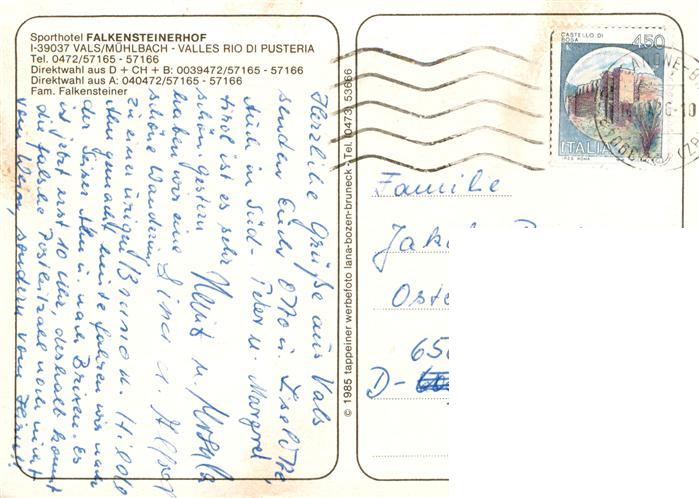 Sporthotel FALKENSTEINERHOF
I-39037 VALS/MÜHLBACH - VALLES RIO DI PUSTERIA
Tel. 0472/57165 - 57166
Direktwahl aus D + CH + B: 0039472/57165 - 57166
Direktwahl aus A: 040472/57165 - 57166
Fam. Falkensteiner
Herzliche Grüße aus Vals
senden Euch Otto u. Liselotte,
Auch in Süd- Peter u. Margret
tirol ist es sehr
schön. Gestern Heinz u. Ursula
haben wir eine
schöne Wanderung Lina u. 
zu einer urigen Bruno u. Hilde
Alm gemacht, heute fahren wir nach
der Seiser Alm u. nach Brixen. Es
ist jetzt erst 10 Uhr, deshalb kommt
die falsche Postleitzahl noch nicht
vom Wein, sondern vom 
© 1985 tappeiner werbefoto lana-bozen-bruneck · Tel. (0473) 53666
CASTELLO DI
BOSA
450
ITALIA
I.P.Z.S. ROMA
Familie
Jak
Oste
650
D-